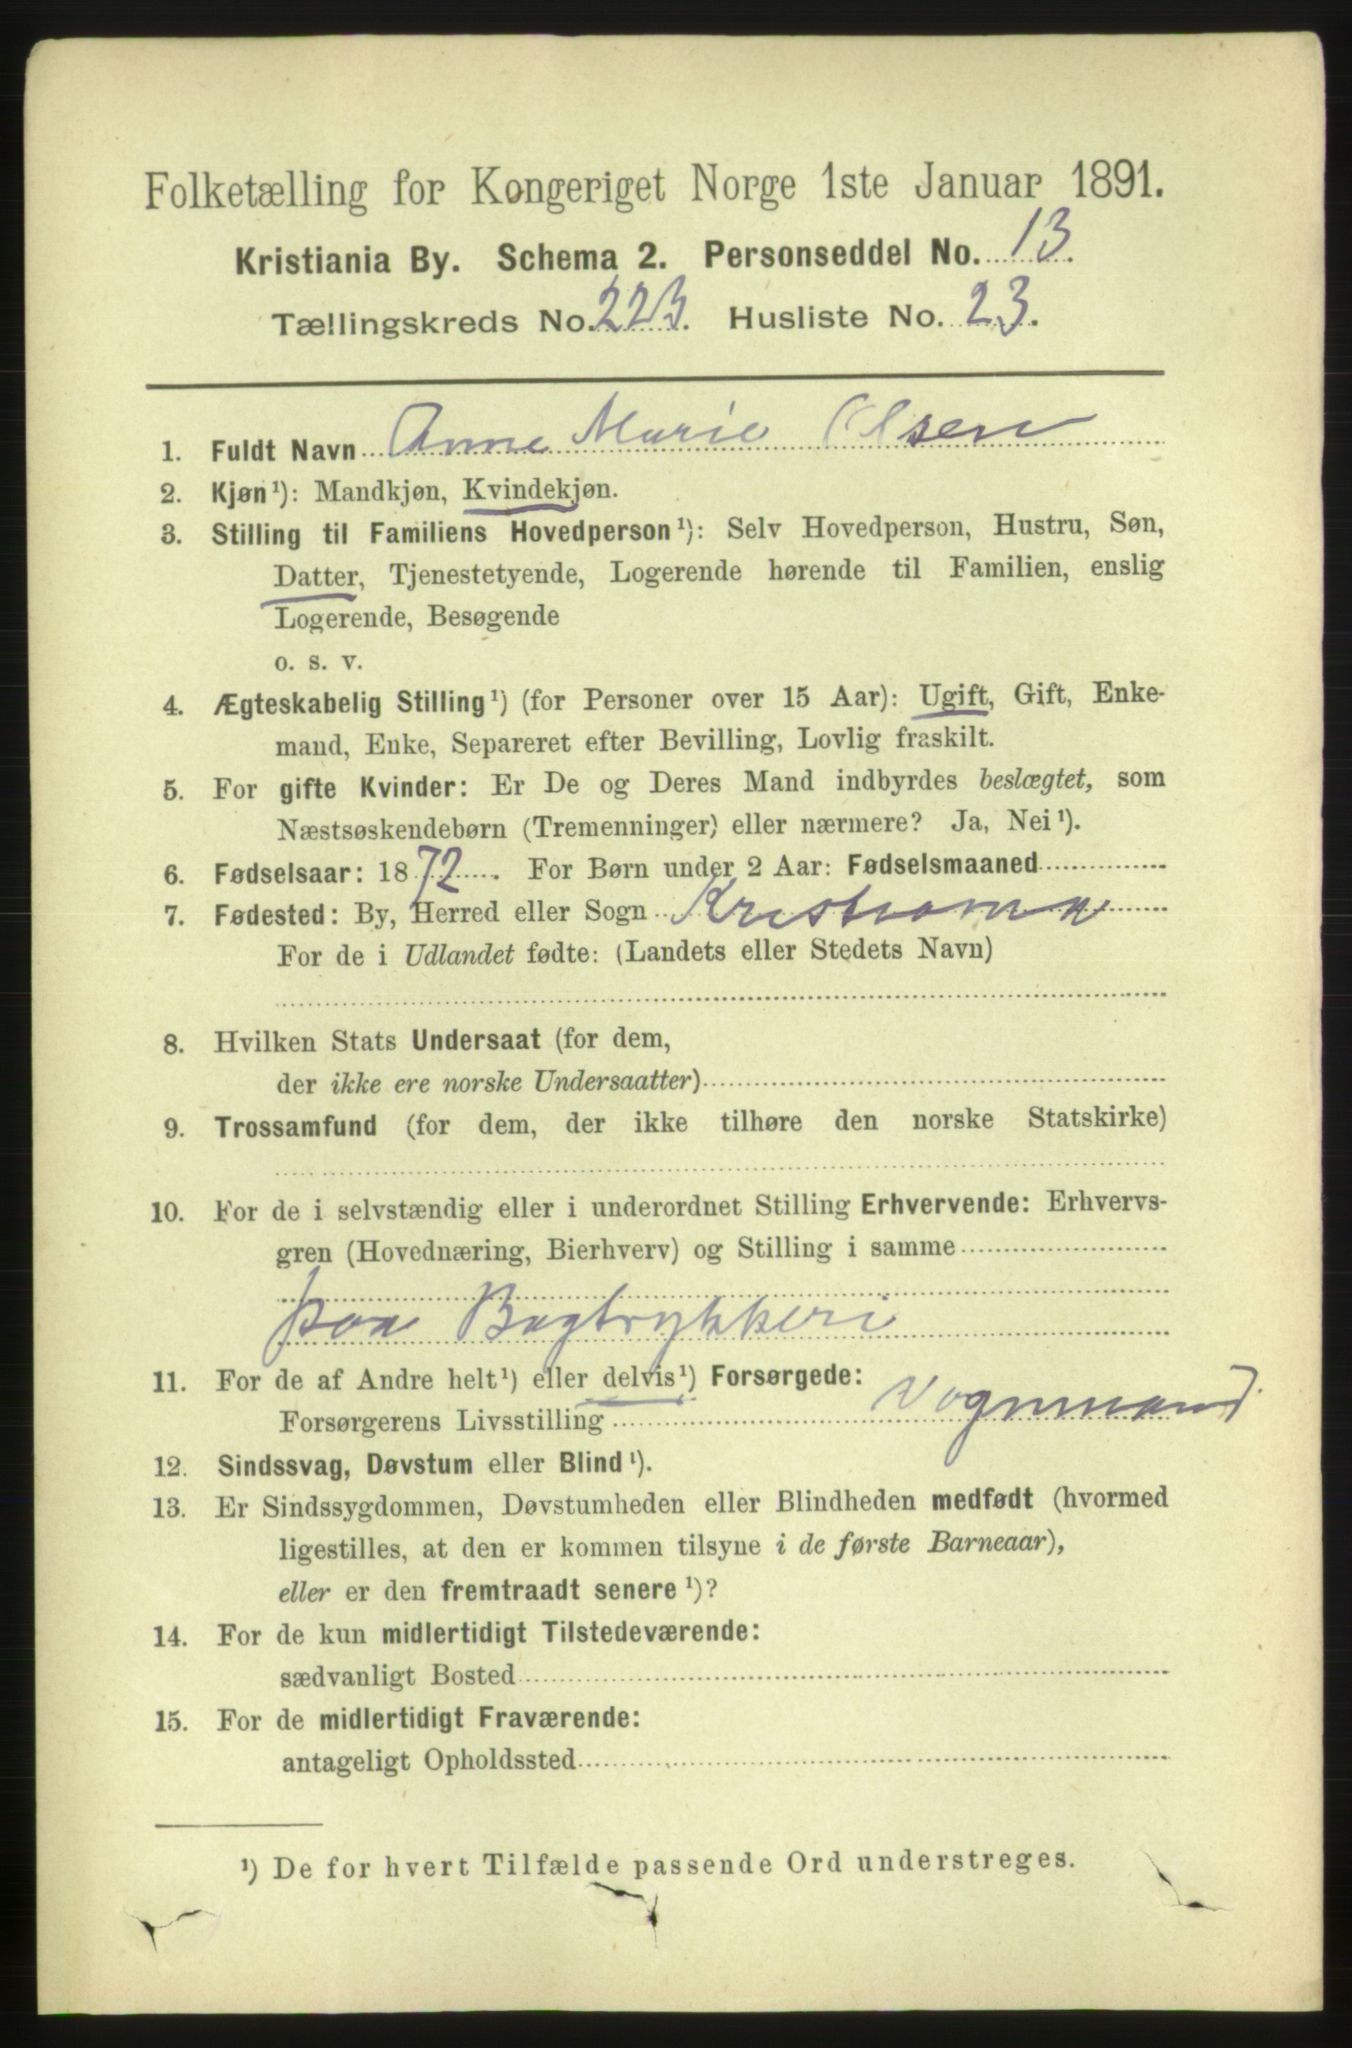 Folketælling for Kongeriget Norge 1ste Januar 1891.
Kristiania By. Schema 2. Personseddel No. 13.
Tællingskreds No. 223. Husliste No. 23.
1. Fuldt Navn Anne Marie Olsen
2. Kjøn¹): Mandkjøn, Kvindekjøn.
3. Stilling til Familiens Hovedperson¹): Selv Hovedperson, Hustru, Søn,
Datter, Tjenestetyende, Logerende hørende til Familien, enslig
Logerende, Besøgende
o. s. v.
4. Ægteskabelig Stilling¹) (for Personer over 15 Aar): Ugift, Gift, Enke-
mand, Enke, Separeret efter Bevilling, Lovlig fraskilt.
5. For gifte Kvinder: Er De og Deres Mand indbyrdes beslægtet, som
Næstsøskendebørn (Tremenninger) eller nærmere? Ja, Nei¹).
6. Fødselsaar: 1872. For Børn under 2 Aar: Fødselsmaaned
7. Fødested: By, Herred eller Sogn Kristiania
For de i Udlandet fødte: (Landets eller Stedets Navn)
8. Hvilken Stats Undersaat (for dem,
der ikke ere norske Undersaatter)
9. Trossamfund (for dem, der ikke tilhøre den norske Statskirke)
10. For de i selvstændig eller i underordnet Stilling Erhvervende: Erhvervs-
gren (Hovednæring, Bierhverv) og Stilling i samme
paa Bogtrykkeri
11. For de af Andre helt¹) eller delvis¹) Forsørgede:
Forsørgerens Livsstilling Vognmand
12. Sindssvag, Døvstum eller Blind¹).
13. Er Sindssygdommen, Døvstumheden eller Blindheden medfødt (hvormed
ligestilles, at den er kommen tilsyne i de første Barneaar),
eller er den fremtraadt senere¹)?
14. For de kun midlertidigt Tilstedeværende:
sædvanligt Bosted
15. For de midlertidigt Fraværende:
antageligt Opholdssted
¹) De for hvert Tilfælde passende Ord understreges.